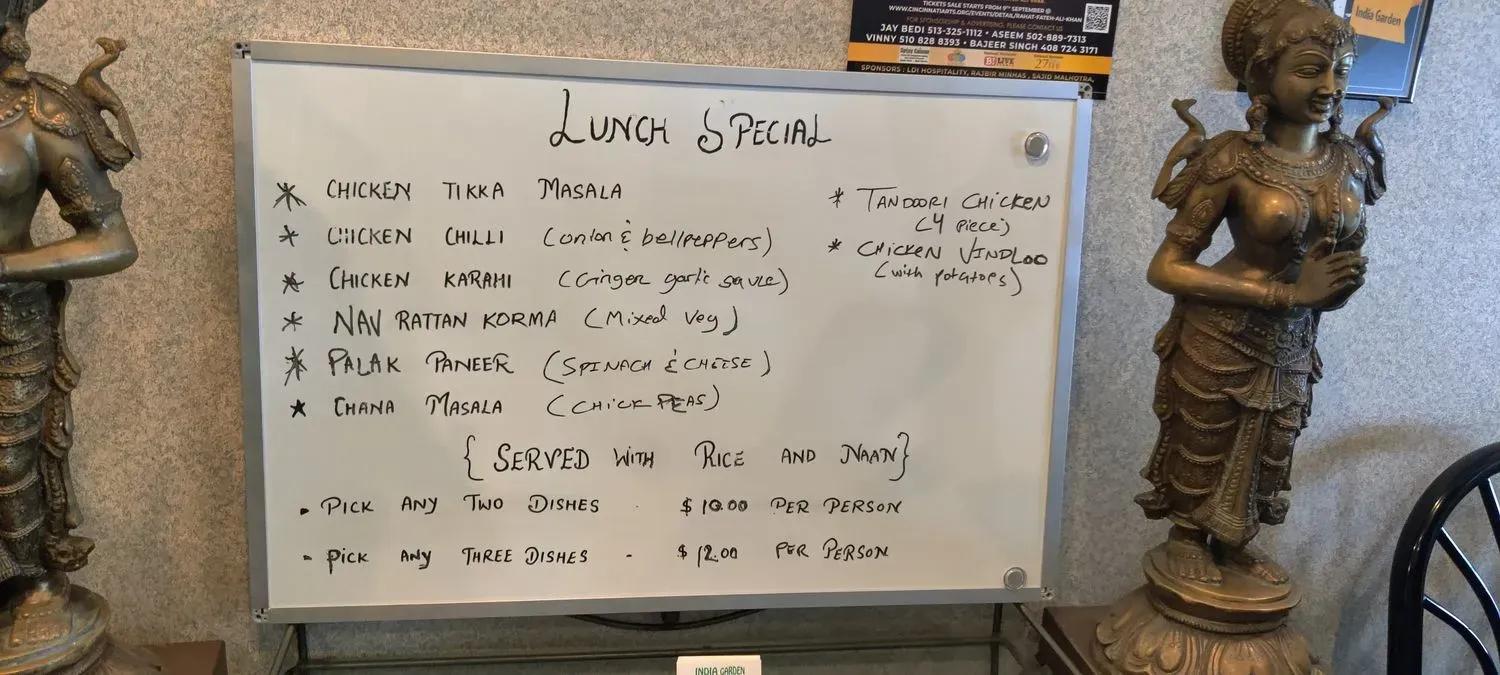 TICKETS SALE STARTS FROM 9TH SEPTEMBER @
WWW.CINCINNATIARTS.ORG/EVENTS/DETAIL/RAHAT-FATEH-ALI-KHAN
FOR SPONSORSHIP & ADVERTISING, PLEASE CONTACT US
JAY BEDI 513-325-1112 • ASEEM 502-889-7313
VINNY 510 828 8393 • BAJEER SINGH 408 724 3171
SPONSORS : LDI HOSPITALITY, RAJBIR MINHAS, SAJID MALHOTRA,
India Garden
LUNCH SPECIAL
* CHICKEN TIKKA MASALA
* CHICKEN CHILLI (onion & bellpeppers)
* CHICKEN KARAHI (Ginger garlic sauce)
* NAV RATTAN KORMA (Mixed Veg)
* PALAK PANEER (SPINACH & CHEESE)
* CHANA MASALA (CHICK PEAS)
* TANDOORI CHICKEN
(4 piece)
* CHICKEN VINDLOO
(with potatoes)
{SERVED WITH RICE AND NAAN}
- PICK ANY TWO DISHES - $10.00 PER PERSON
- PICK ANY THREE DISHES - $12.00 PER PERSON
INDIA GARDEN